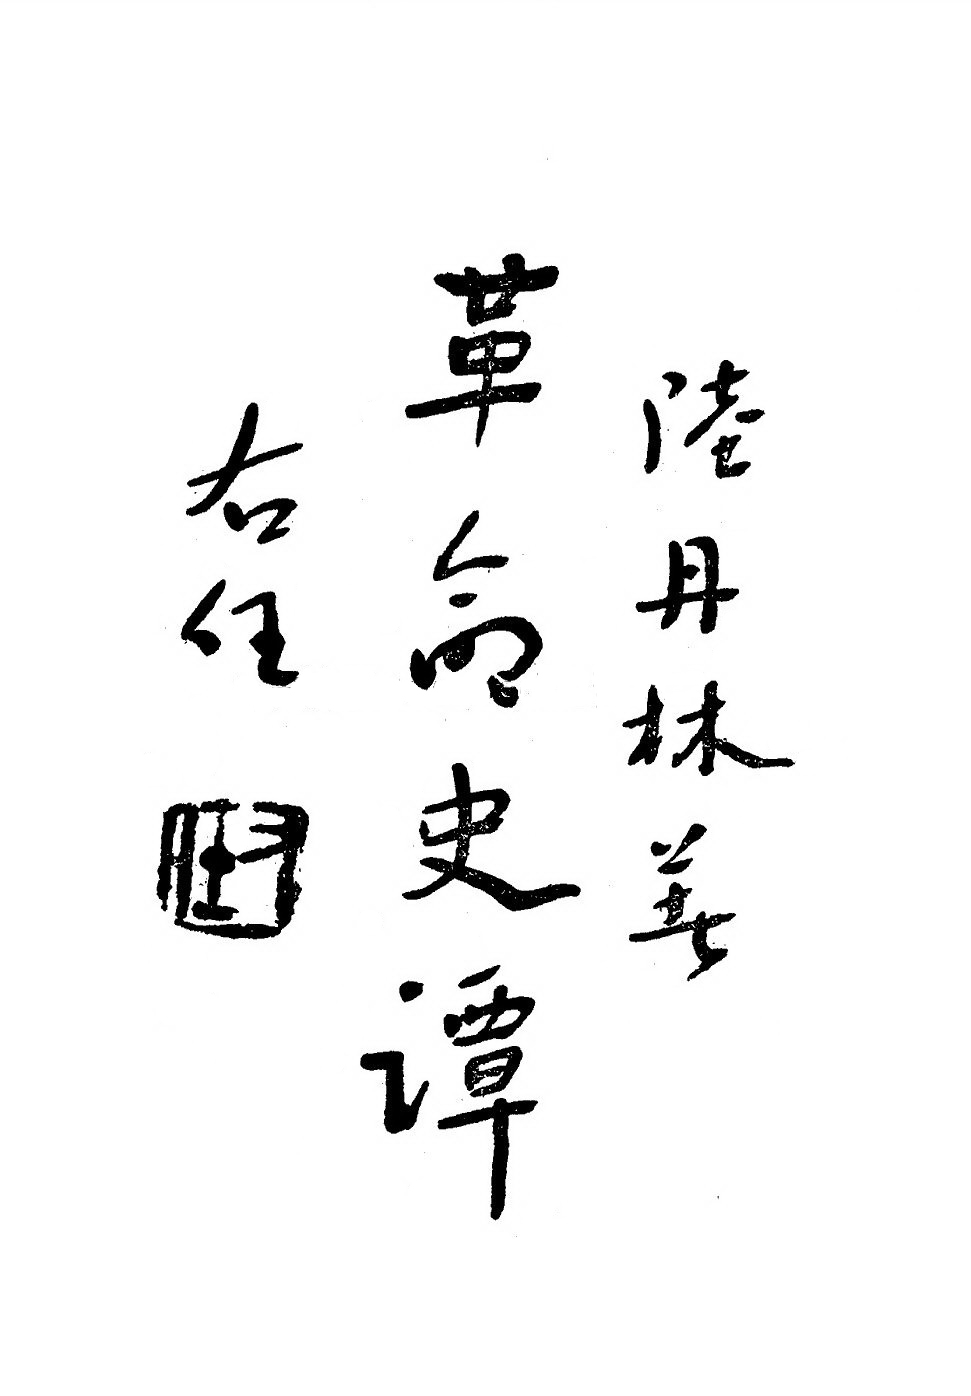 陸丹林著
革命史譚
右任
右任